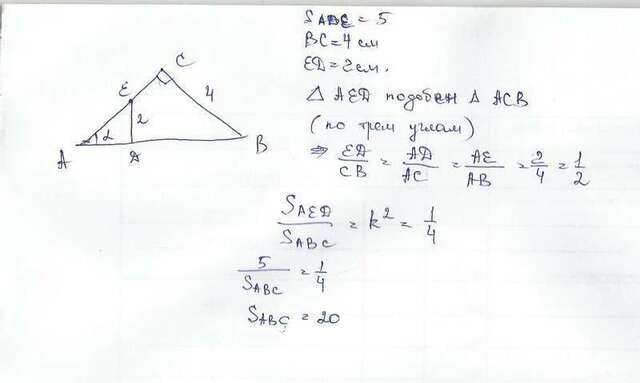 S ADE = 5
BC = 4 см
ED = 2 см.
△ AED подобен △ ACB
(по трем углам)
⇒ ED/CB = AD/AC = AE/AB = 2/4 = 1/2
S AED / S ABC = k² = 1/4
5 / S ABC = 1/4
S ABC = 20
C
E
4
2
A
α
D
B